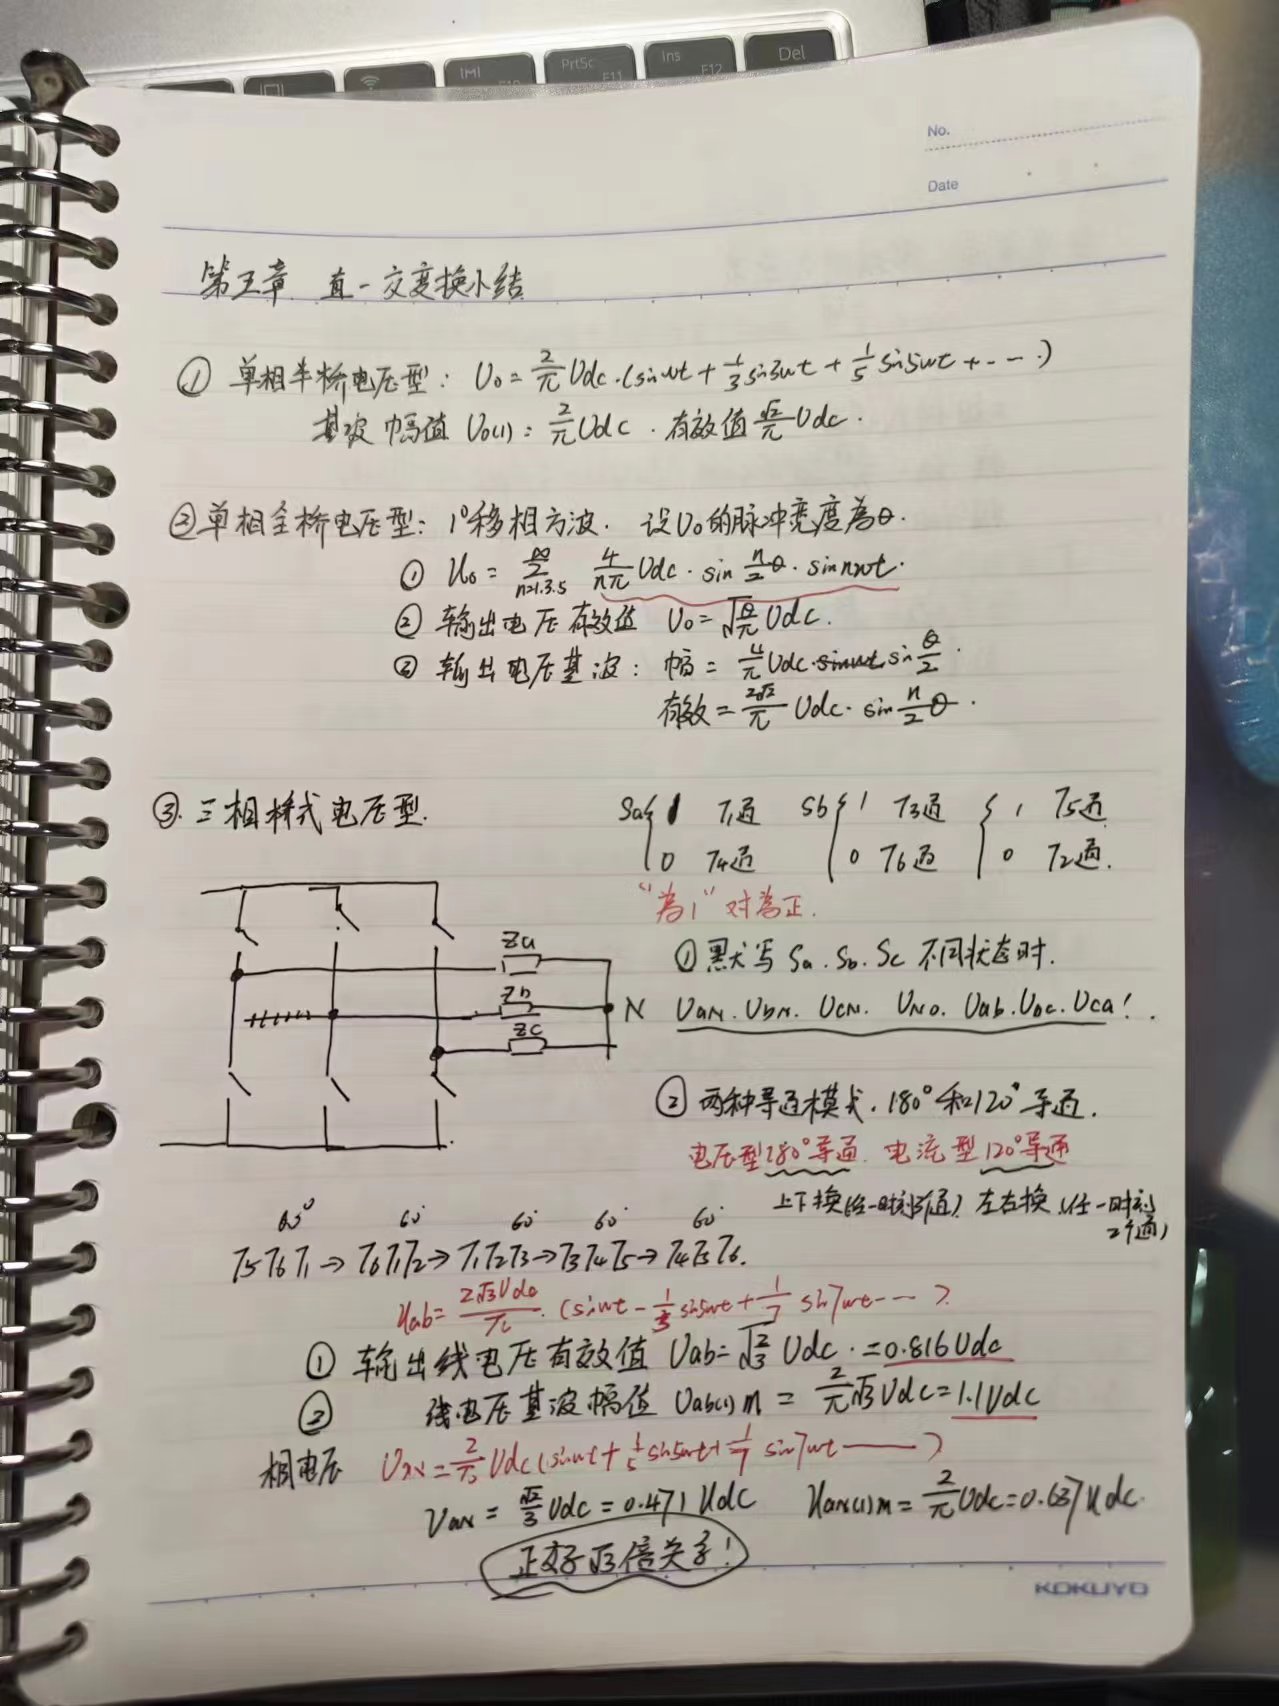 PrtSc
F11
Ins
F12
Del
No.
Date
第五章 直-交变换小结
① 单相半桥电压型: U₀ = 2/π Udc·(sinωt + 1/3 sin3ωt + 1/5 sin5ωt + ---)
基波 幅值 U₀₍₁₎ = 2/π Udc . 有效值 √2/π Udc .
② 单相全桥电压型: 1° 移相方波. 设U₀的脉冲宽度为θ.
① U₀ = ∞ Σ n=1.3.5 4/nπ Udc · sin n/2 θ · sin nωt.
② 输出电压有效值 U₀ = √(θ/π) Udc.
③ 输出电压基波: 幅 = 4/π Udc · sin θ/2 .
有效 = 2√2/π Udc · sin n/2 θ .
③. 三相桥式电压型.
Sa { 1 T₁通 Sb { 1 T3通 { 1 T5通
0 T4通 0 T6通 0 T2通.
"为1"时为正.
① 默写 Sa . Sb . Sc 不同状态时.
Za
Zb
Zc
N
UaN . UbN . UcN . UNo . Uab . Ubc . Uca !
② 两种导通模式. 180°和120°导通.
电压型180°导通. 电流型120°导通
上下换(任一时刻3个通) 左右换(任一时刻2个通)
60° 60° 60° 60° 60°
T5T6T1 → T6T1T2 → T1T2T3 → T3T4T5 → T4T5T6.
Uab = 2√3Udc/π · (sinωt - 1/5 sin5ωt + 1/7 sin7ωt --- )
① 输出线电压有效值 Uab = √(2/3) Udc . = 0.816Udc
② 线电压基波幅值 Uab(1)m = 2/π √3 Udc = 1.1Udc
相电压 UaN = 2/π Udc (sinωt + 1/5 sin5ωt + 1/7 sin7ωt --- )
UaN = √2/3 Udc = 0.471 Udc UaN(1)m = 2/π Udc = 0.637Udc.
正好√3倍关系!
KOKUYO